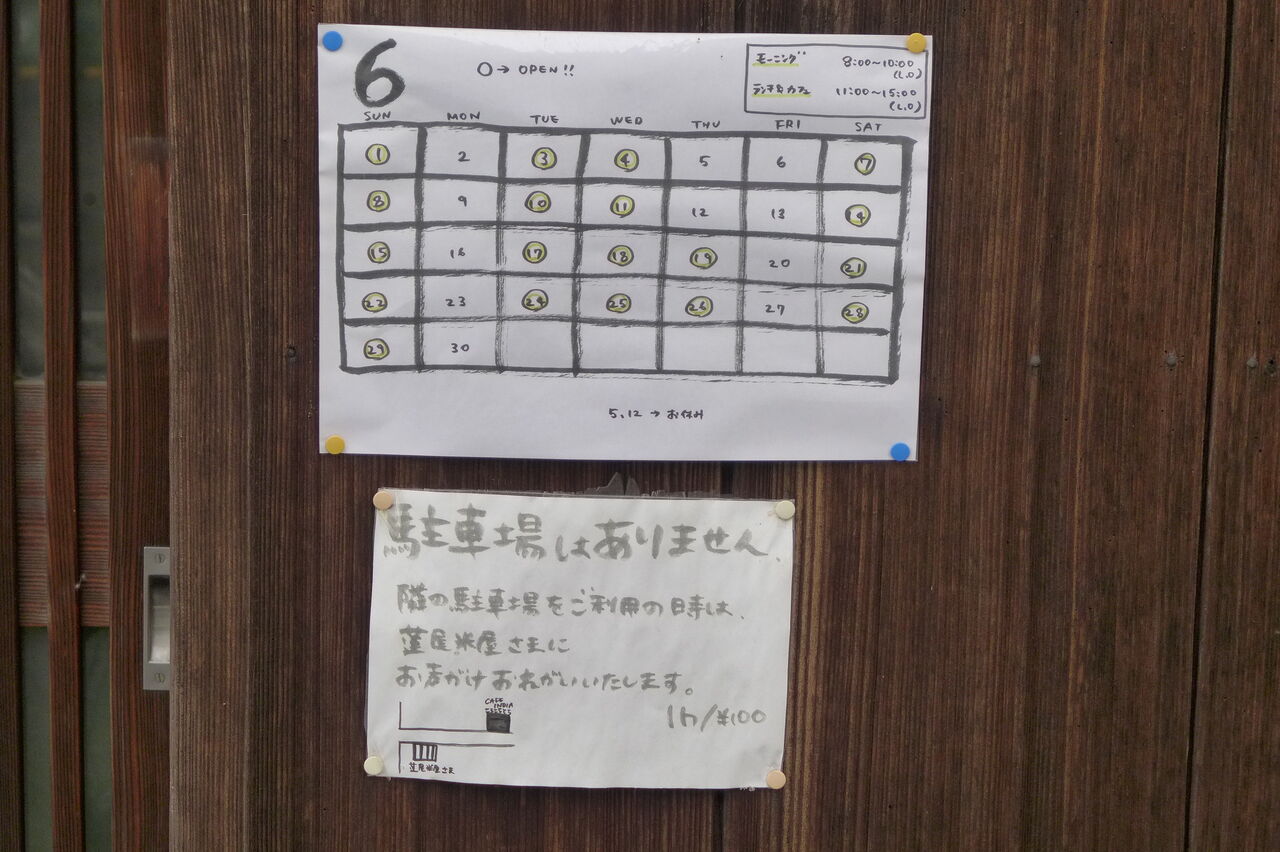 6
○→ OPEN!!
モーニング 8:00~10:00
(L.O)
ランチ&カフェ 11:00~15:00
(L.O)
SUN MON TUE WED THU FRI SAT
1 2 3 4 5 6 7
8 9 10 11 12 13 14
15 16 17 18 19 20 21
22 23 24 25 26 27 28
29 30
5,12 → お休み
駐車場はありません。
隣の駐車場をご利用の時は、
蓮尾米屋さまに
お声がけおねがいいたします。
1h/¥100
CAFE
INDIA
蓮尾米屋さま